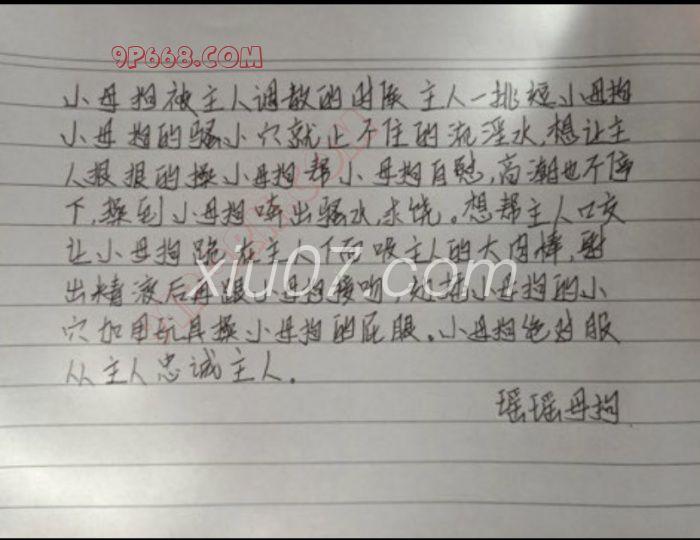 9P668.COM
小母狗被主人调教的时候 主人一挑逗小母狗
小母狗的骚小穴就止不住的流淫水,想让主
人狠狠的操小母狗帮小母狗自慰,高潮也不停
下,操到小母狗喷出骚水,求饶。想帮主人口交
让小母狗跪在主人下面吸主人的大肉棒,射
出精液后再跟小母狗接吻 小母狗的小
穴加用玩具操小母狗的屁眼。小母狗绝对服
从主人忠诚主人.
瑶瑶母狗
xiu07.com